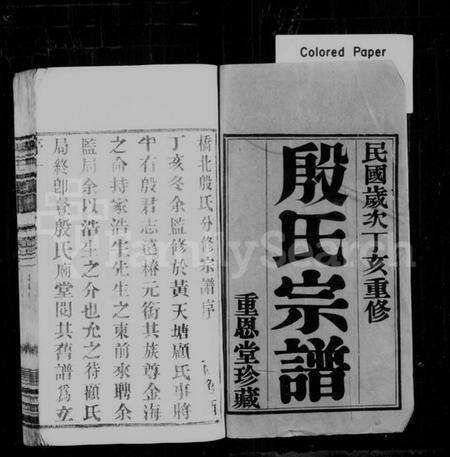 Colored Paper
民國歲次丁亥重修
殷氏宗譜
重恩堂珍藏
橋北殷氏分修宗譜序
丁亥冬余監修於黃天塘顧氏事將
半有殷君志道椿元銜其族尊金海
之命持家浩生先生之柬前來聘余
監局余以浩生之分也允之待顧氏
局終卽登殷氏廟堂閱其舊譜爲立
FamilySearch